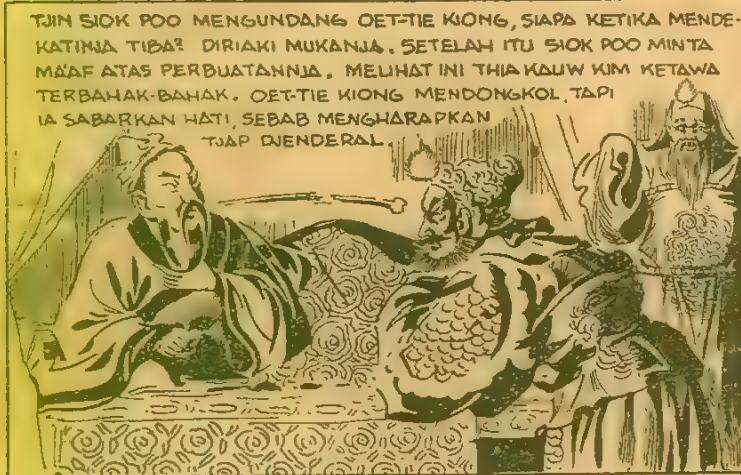 TJIN SIOK POO MENGUNDANG OET-TIE KIONG, SIAPA KETIKA MENDE-
KATINJA TIBA² DIRIAKI MUKANJA. SETELAH ITU SIOK POO MINTA
MA'AF ATAS PERBUATANNJA. MELIHAT INI THIA KAUW KIM KETAWA
TERBAHAK-BAHAK. OET-TIE KIONG MENDONGKOL, TAPI
IA SABARKAN HATI, SEBAB MENGHARAPKAN
TJAP DJENDERAL.